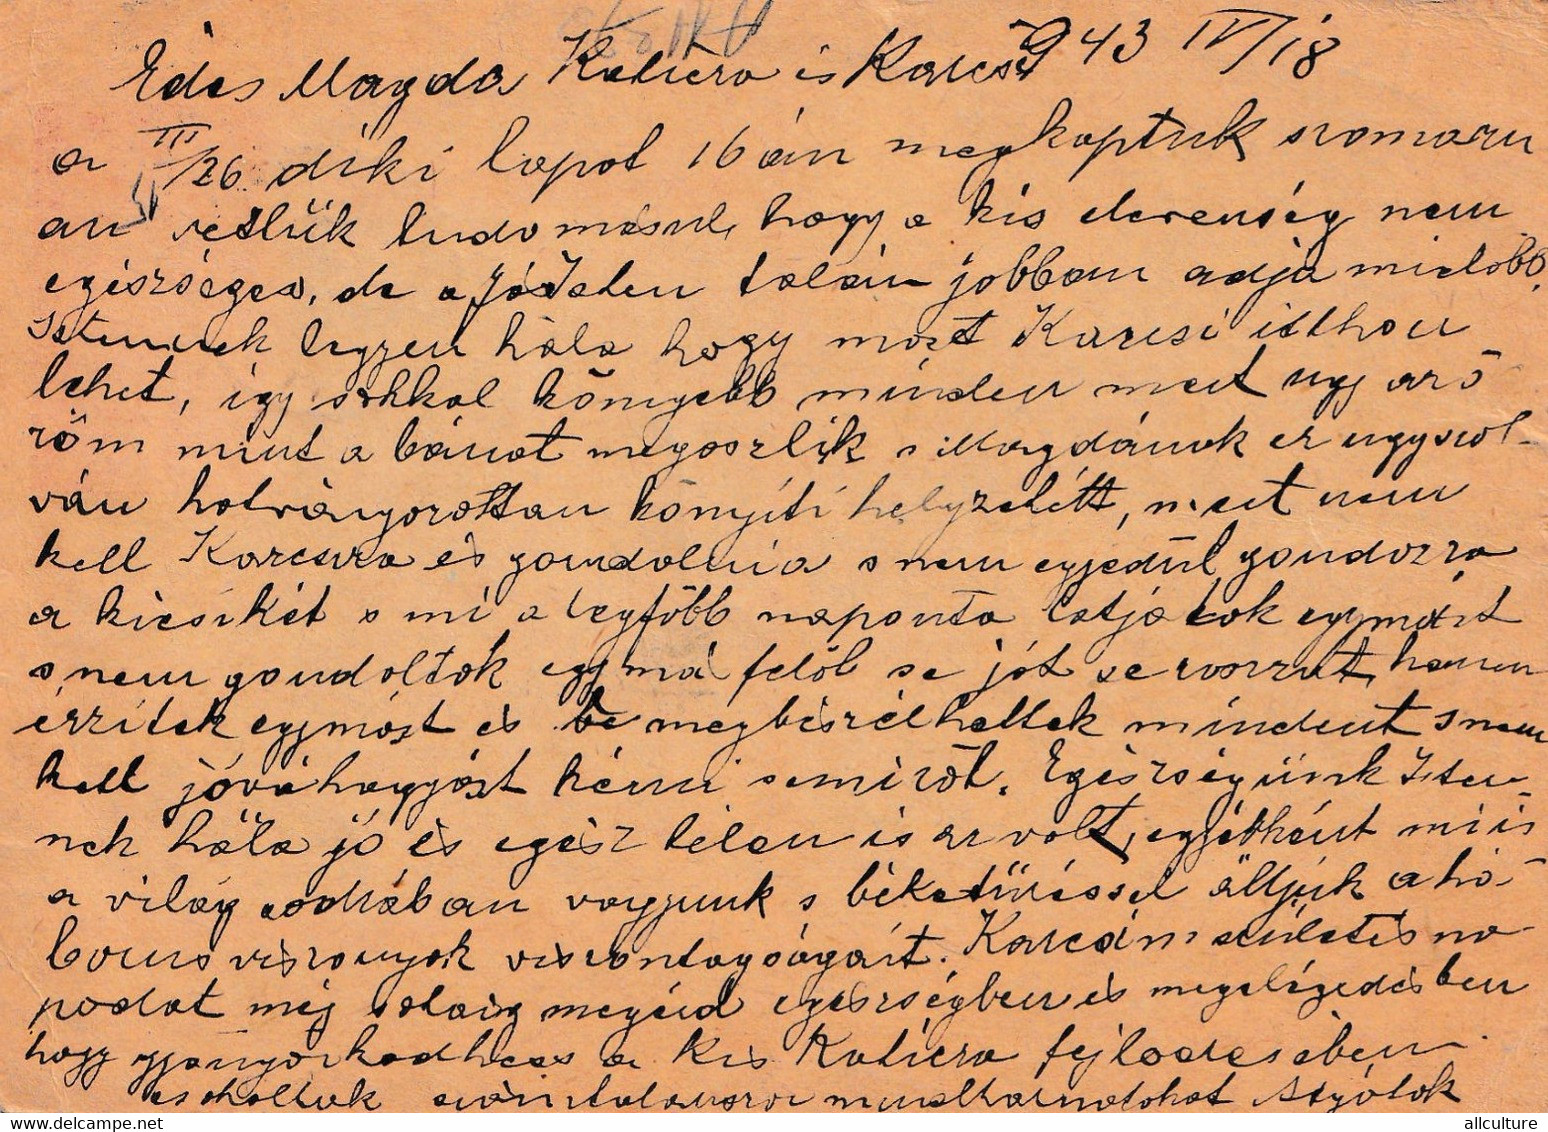 943 IV/18
Édes Magda Katicza és Karcsi
a III/26 diki lapot 16 án megkaptuk szomoru
an vettük tudomásul, hogy a kis nem
egészséges, de a jó Isten talán jobban adja mielőbb.
Istennek legyen hála hogy most Karcsi itthon
lehet, igy sokkal könyebb minden mert ugy az ö
röm mint a bánat megoszlik s Magdának ez ugyszol-
ván hatványozottan könyíti helyzetétt, mert nem
kell Karcsira és gondolnia s nem egyedül gondozza
a kicsikét s mi a legföbb naponta látjátok egymást
s nem gondoltok egymá felöl se jót se rosszat, hanem
érzitek egymást és be megbészélhettek mindent s nem
kell jóváhagyást kérni semiröl. Egészségünk Iste-
nek hála jó és egész télen is az volt, egyébként mi is
a világ sodrában vagyunk s béketüréssel álljuk a há-
borus viszonyok viszontagságait. Karcsim születés na-
podat még sokáig megérd egészségben és megelégedésben
hogy gyönyörködhess a kis Katicza fejlödésében
csokoltuk számtalanszor mindhármatokat Atyátok
allculture